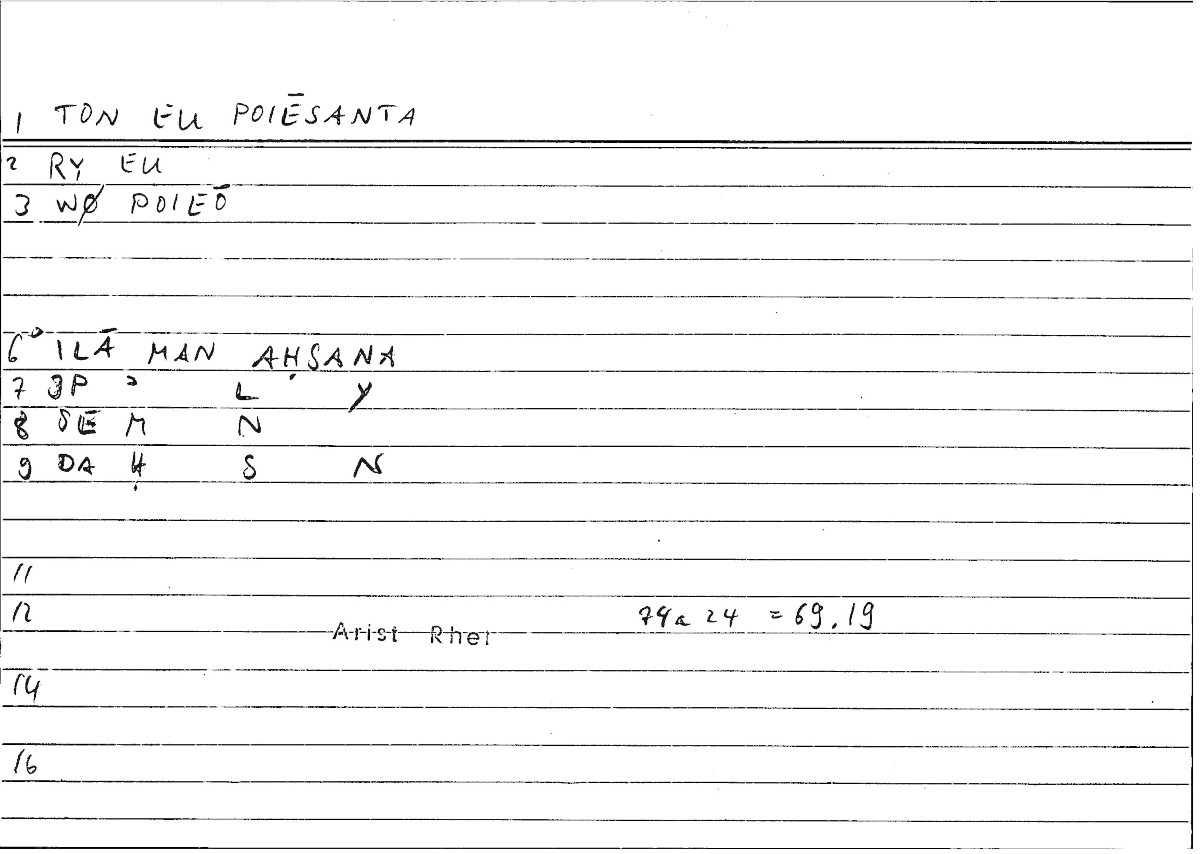 1 TON EU POIĒSANTA
2 RY EU
3 WØ POIEŌ
6 ʾILĀ MAN AḤSANA
7 ʾ L Y
8 M N
9 DA Ḥ S N
11
12
Arist Rhet 74a 24 = 69.19
14
16